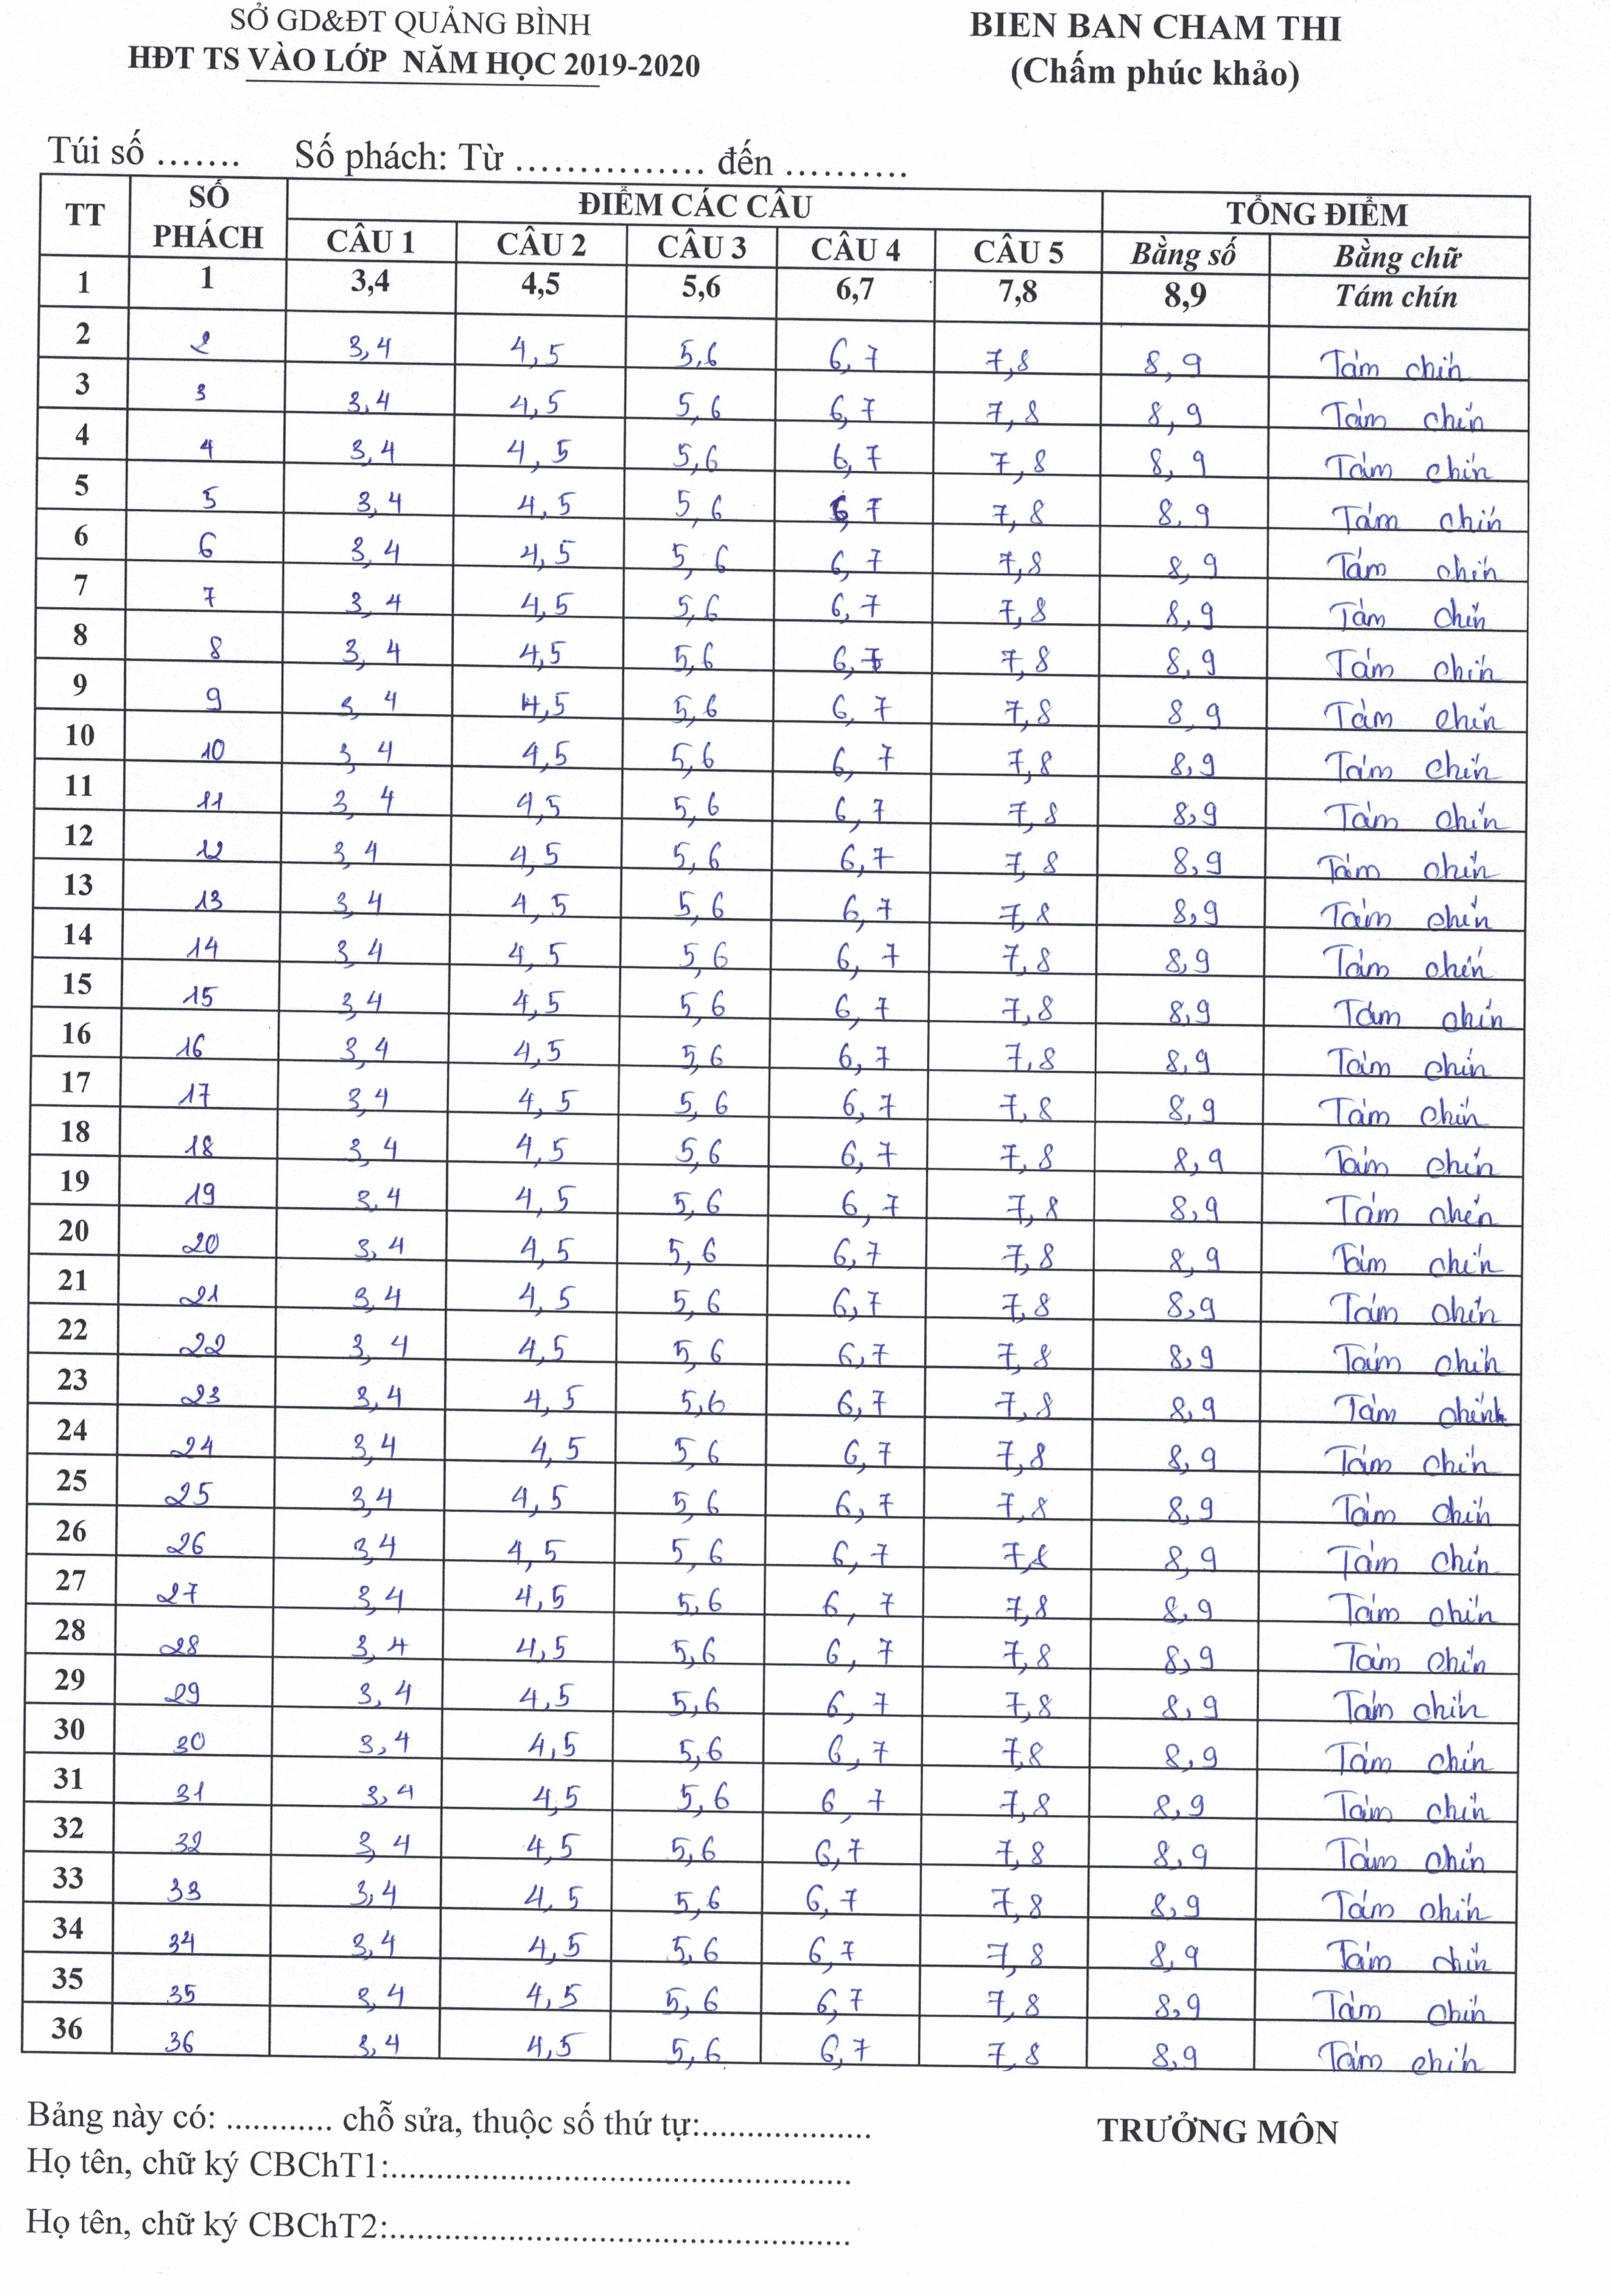 SỞ GD&ĐT QUẢNG BÌNH
HĐT TS VÀO LỚP NĂM HỌC 2019-2020
BIEN BAN CHAM THI
(Chấm phúc khảo)
Túi số ....... Số phách: Từ ................ đến ..........
TT SỐ PHÁCH ĐIỂM CÁC CÂU TỔNG ĐIỂM
CÂU 1 CÂU 2 CÂU 3 CÂU 4 CÂU 5 Bằng số Bằng chữ
1 1 3,4 4,5 5,6 6,7 7,8 8,9 Tám chín
2 2 3,4 4,5 5,6 6,7 7,8 8,9 Tám chín
3 3 3,4 4,5 5,6 6,7 7,8 8,9 Tám chín
4 4 3,4 4,5 5,6 6,7 7,8 8,9 Tám chín
5 5 3,4 4,5 5,6 6,7 7,8 8,9 Tám chín
6 6 3,4 4,5 5,6 6,7 7,8 8,9 Tám chín
7 7 3,4 4,5 5,6 6,7 7,8 8,9 Tám chín
8 8 3,4 4,5 5,6 6,7 7,8 8,9 Tám chín
9 9 3,4 4,5 5,6 6,7 7,8 8,9 Tám chín
10 10 3,4 4,5 5,6 6,7 7,8 8,9 Tám chín
11 11 3,4 4,5 5,6 6,7 7,8 8,9 Tám chín
12 12 3,4 4,5 5,6 6,7 7,8 8,9 Tám chín
13 13 3,4 4,5 5,6 6,7 7,8 8,9 Tám chín
14 14 3,4 4,5 5,6 6,7 7,8 8,9 Tám chín
15 15 3,4 4,5 5,6 6,7 7,8 8,9 Tám chín
16 16 3,4 4,5 5,6 6,7 7,8 8,9 Tám chín
17 17 3,4 4,5 5,6 6,7 7,8 8,9 Tám chín
18 18 3,4 4,5 5,6 6,7 7,8 8,9 Tám chín
19 19 3,4 4,5 5,6 6,7 7,8 8,9 Tám chín
20 20 3,4 4,5 5,6 6,7 7,8 8,9 Tám chín
21 21 3,4 4,5 5,6 6,7 7,8 8,9 Tám chín
22 22 3,4 4,5 5,6 6,7 7,8 8,9 Tám chín
23 23 3,4 4,5 5,6 6,7 7,8 8,9 Tám chính
24 24 3,4 4,5 5,6 6,7 7,8 8,9 Tám chín
25 25 3,4 4,5 5,6 6,7 7,8 8,9 Tám chín
26 26 3,4 4,5 5,6 6,7 7,8 8,9 Tám chín
27 27 3,4 4,5 5,6 6,7 7,8 8,9 Tám chín
28 28 3,4 4,5 5,6 6,7 7,8 8,9 Tám chín
29 29 3,4 4,5 5,6 6,7 7,8 8,9 Tám chín
30 30 3,4 4,5 5,6 6,7 7,8 8,9 Tám chín
31 31 3,4 4,5 5,6 6,7 7,8 8,9 Tám chín
32 32 3,4 4,5 5,6 6,7 7,8 8,9 Tám chín
33 33 3,4 4,5 5,6 6,7 7,8 8,9 Tám chín
34 34 3,4 4,5 5,6 6,7 7,8 8,9 Tám chín
35 35 3,4 4,5 5,6 6,7 7,8 8,9 Tám chín
36 36 3,4 4,5 5,6 6,7 7,8 8,9 Tám chín
Bảng này có: ............ chỗ sửa, thuộc số thứ tự:...................
TRƯỞNG MÔN
Họ tên, chữ ký CBChT1:...................................................
Họ tên, chữ ký CBChT2:...................................................